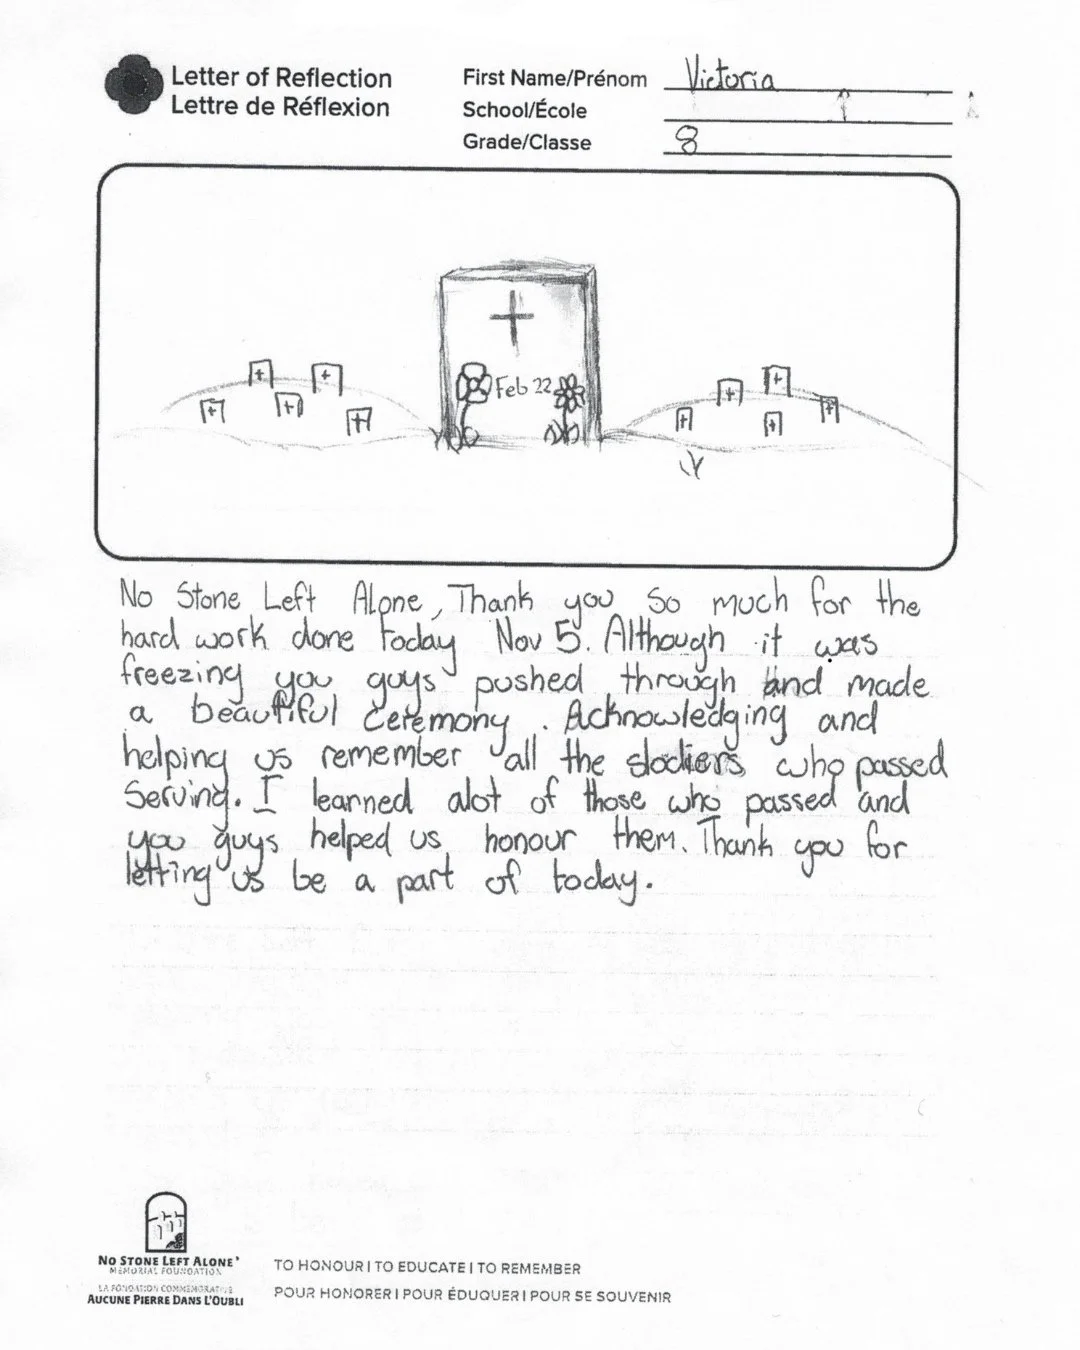 Letter of Reflection
Lettre de Réflexion
First Name/Prénom Victoria
School/École
Grade/Classe 8
Feb 22
No Stone Left Alone, Thank you so much for the
hard work done today Nov 5. Although it was
freezing you guys pushed through and made
a beautiful ceremony. Acknowledging and
helping us remember all the slodiers who passed
serving. I learned alot of those who passed and
you guys helped us honour them. Thank you for
letting us be a part of today.
NO STONE LEFT ALONE
MEMORIAL FOUNDATION
LA FONDATION COMMÉMORATIVE
AUCUNE PIERRE DANS L'OUBLI
TO HONOUR | TO EDUCATE | TO REMEMBER
POUR HONORER | POUR ÉDUQUER | POUR SE SOUVENIR